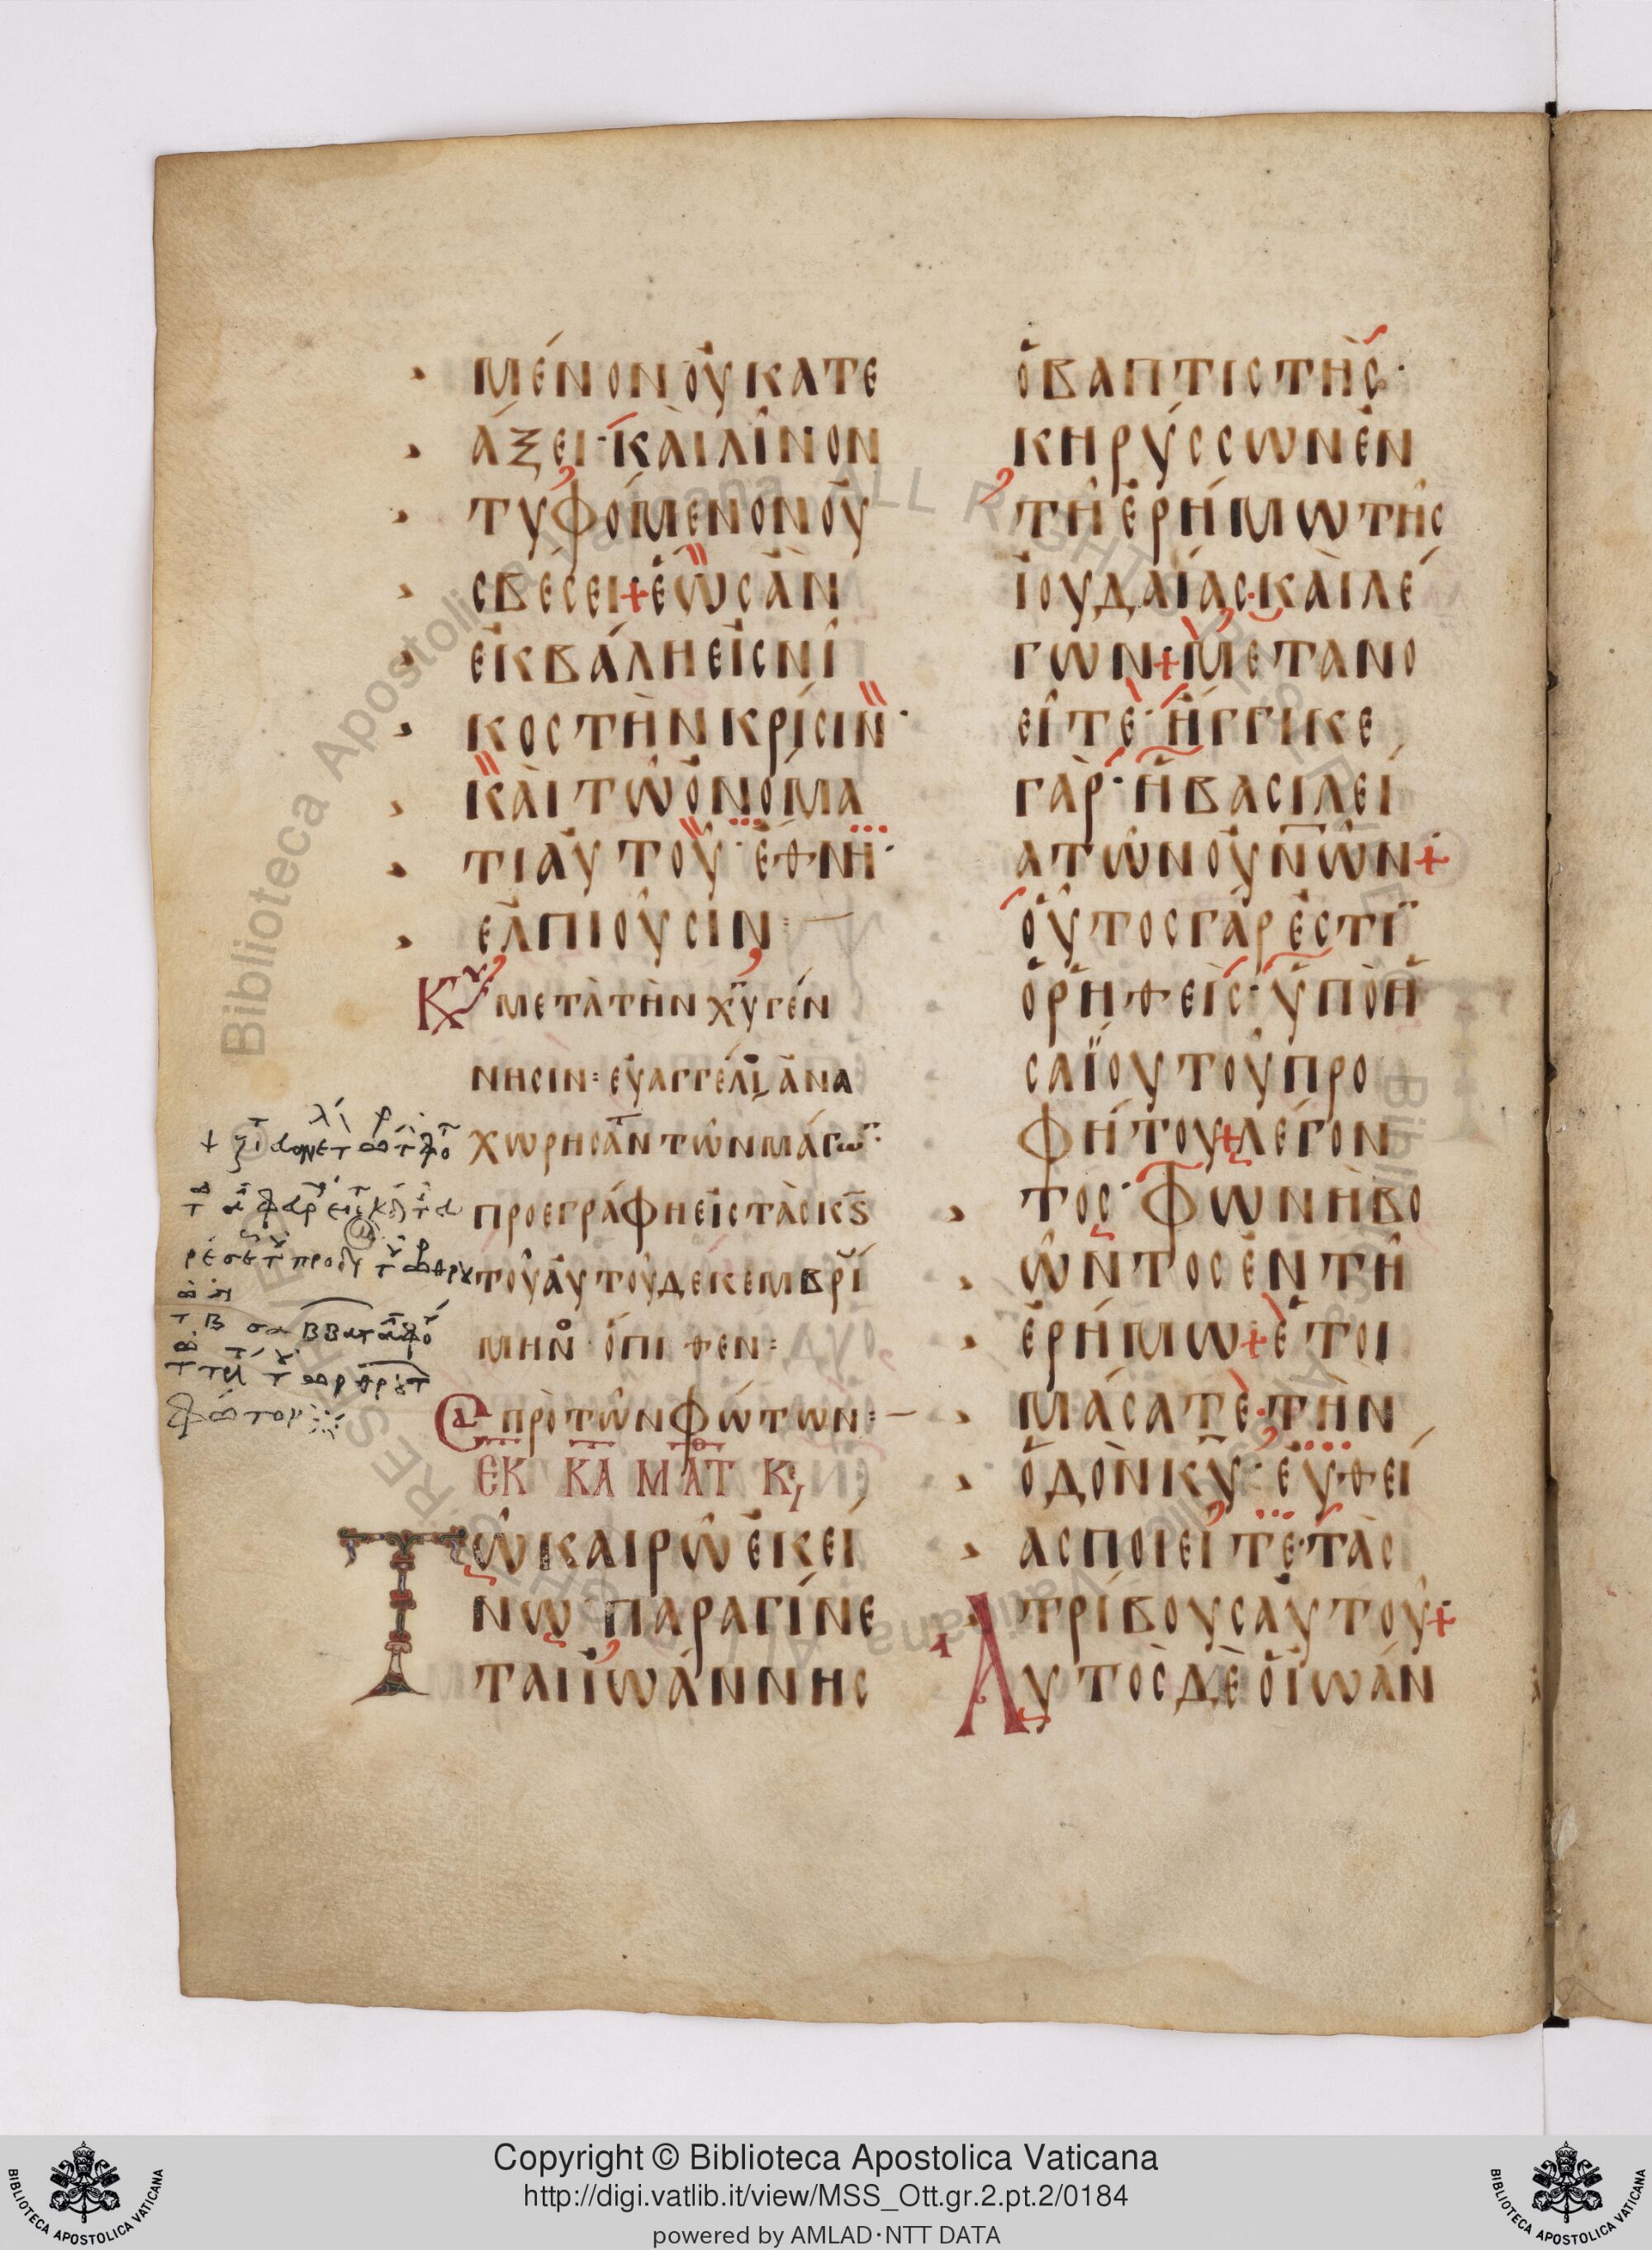 ΜΈΝΟΝ ΟΥ̓ ΚΑΤΕ
Ά̣ΞΕΙ· ΚΑῚ ΛΊΝΟΝ
ΤΥΦΌΜΕΝΟΝ ΟΥ̓
ΣΒΈΣΕΙ + ἝΩΣ ἊΝ
ἘΚΒΆΛΗ ΕἸΣ ΝΙ͂
ΚΟΣ ΤῊΝ ΚΡΊΣΙΝ·
ΚΑῚ ΤΩ͂ ὈΝΌΜΑ
ΤΙ ΑΥ̓ΤΟΥ͂· ἜΘΝΗ·
ἘΛΠΙΟΥ͂ΣΙΝ :—
Κυ ΜΕΤᾺ ΤῊΝ ΧΥ ΓΈΝ
ΝΗΣΙΝ : ΕΥ̓ΑΓΓΈΛΙ ἈΝΑ
ΧΩΡΗΣΆΝΤΩΝ ΤΩ͂Ν ΜΆΓΩ :
ΠΡΟΕΓΡΆΦΗ ΕἸΣ ΤᾺΣ ΚϚ
ΤΟΥ͂ ΑΥ̓ΤΟΥ͂ ΔΕΚΕΜΒΡΊ
ΜΗΝ ὈΠΙΘΕΝ :
Σα ΠΡῸ ΤΩ͂Ν ΦΏΤΩΝ :—
ΕΚ ΚΑ ΜΑΤ Κ,
ΤΩ͂ ΚΑΙΡΩ͂ ἘΚΕΊ
ΝΩ ΠΑΡΑΓΊΝΕ
ΤΑΙ ἸΩΆΝΝΗΣ
Ὁ ΒΑΠΤΙΣΤῊΣ·
ΚΗΡΎΣΣΩΝ ἘΝ
ΤΗ͂ ἘΡΉΜΩ ΤΗ͂Σ
ἸΟΥΔΑΊΑΣ· ΚΑῚ ΛΈ
ΓΩΝ + ΜΕΤΑΝΟ
ΕΙ͂ΤΕ· ἬΓΓΙΚΕ
ΓᾺΡ· Ἡ ΒΑΣΙΛΕΊ
Α ΤΩ͂Ν ΟΥ̓ΝΩ͂Ν +
ΟὟΤΟΣ ΓΆΡ ἘΣΤΙ
Ὁ ΡΗΘΕῚΣ· ὙΠῸ Ἠ
ΣΑΪΟΥ ΤΟΥ͂ ΠΡΟ
ΦΉΤΟΥ + ΛΈΓΟΝ
ΤΟΣ· ΦΩΝῊ ΒΟ
Ω͂ΝΤΟΣ ἘΝ ΤΗ͂
ἘΡΉΜΩ + ἙΤΟΙ
ΜΆΣΑΤΕ· ΤῊΝ
ὉΔῸΝ ΚΥ· ΕΥ̓ΘΕΊ
ΑΣ ΠΟΙΕΙ͂ΤΕ· ΤᾺΣ
ΤΡΊΒΟΥΣ ΑΥ̓ΤΟΥ͂ +
ΑΥ̓ΤῸΣ ΔῈ Ὁ ἸΩΆΝ
Copyright © Biblioteca Apostolica Vaticana
http://digi.vatlib.it/view/MSS_Ott.gr.2.pt.2/0184
powered by AMLAD·NTT DATA
BIBLIOTECA APOSTOLICA VATICANA
BIBLIOTECA APOSTOLICA VATICANA